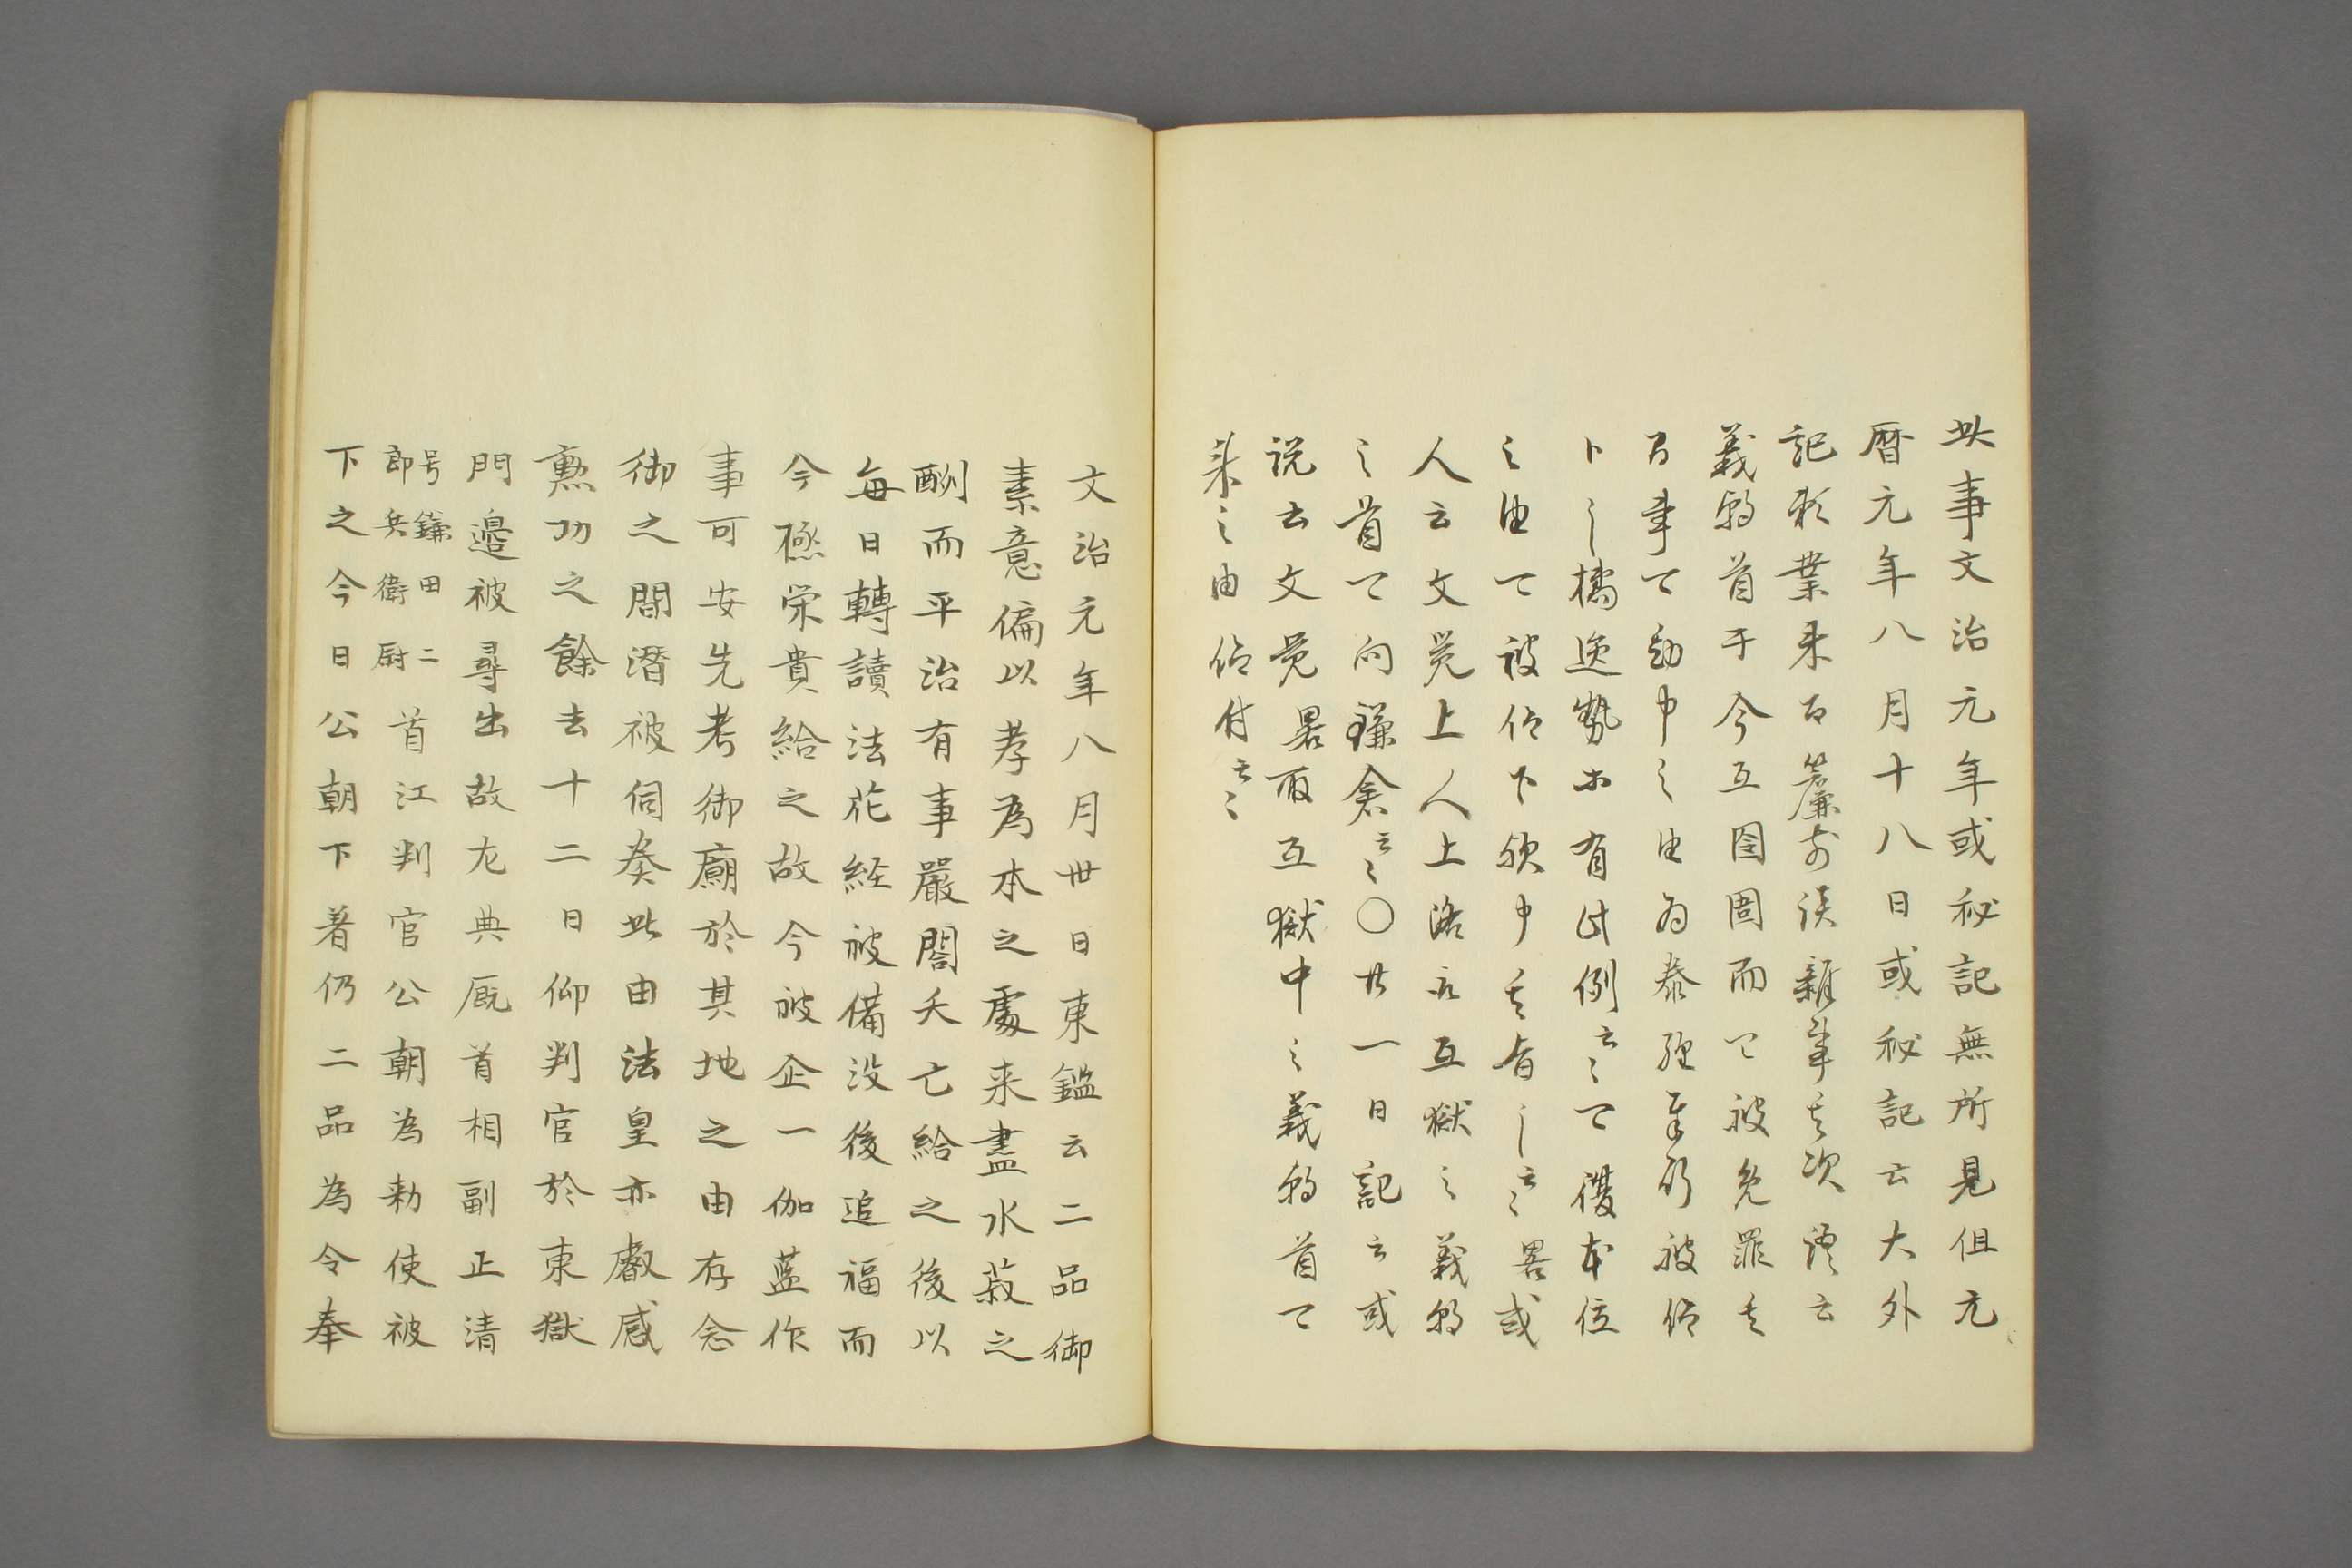 此事文治元年或秘記無所見但元
暦元年八月十八日或秘記云大外
記頼業来召簾前談雑事其次語云
義朝首于今在囹圄而可被免罪其
首事可勘申之由為泰経奉行被仰
下之橘逸勢等有此例云々可復本位
之由可被仰下歟申其旨了云々畧或
人云文覚上人上洛之在獄之義朝
之首可向鎌倉云々○廿一日記云或
説云文覚畧取在獄中之義朝首可
来之由結付云々
文治元年八月卅日東鑑云二品御
素意偏以孝為本之處来盡水菽之
酬而平治有事嚴閤夭亡給之後以
毎日轉讀法花経被備没後追福而
今極栄貴給之故今被企一伽藍作
事可安先考御廟於其地之由存念
御之間潜被伺奏此由法皇亦叡感
勲功之餘去十二日仰判官於東獄
門邉被尋出故左典厩首相副正清
号鎌田二郎兵衛尉首江判官公朝為勅使被
下之今日公朝下著仍二品為令奉